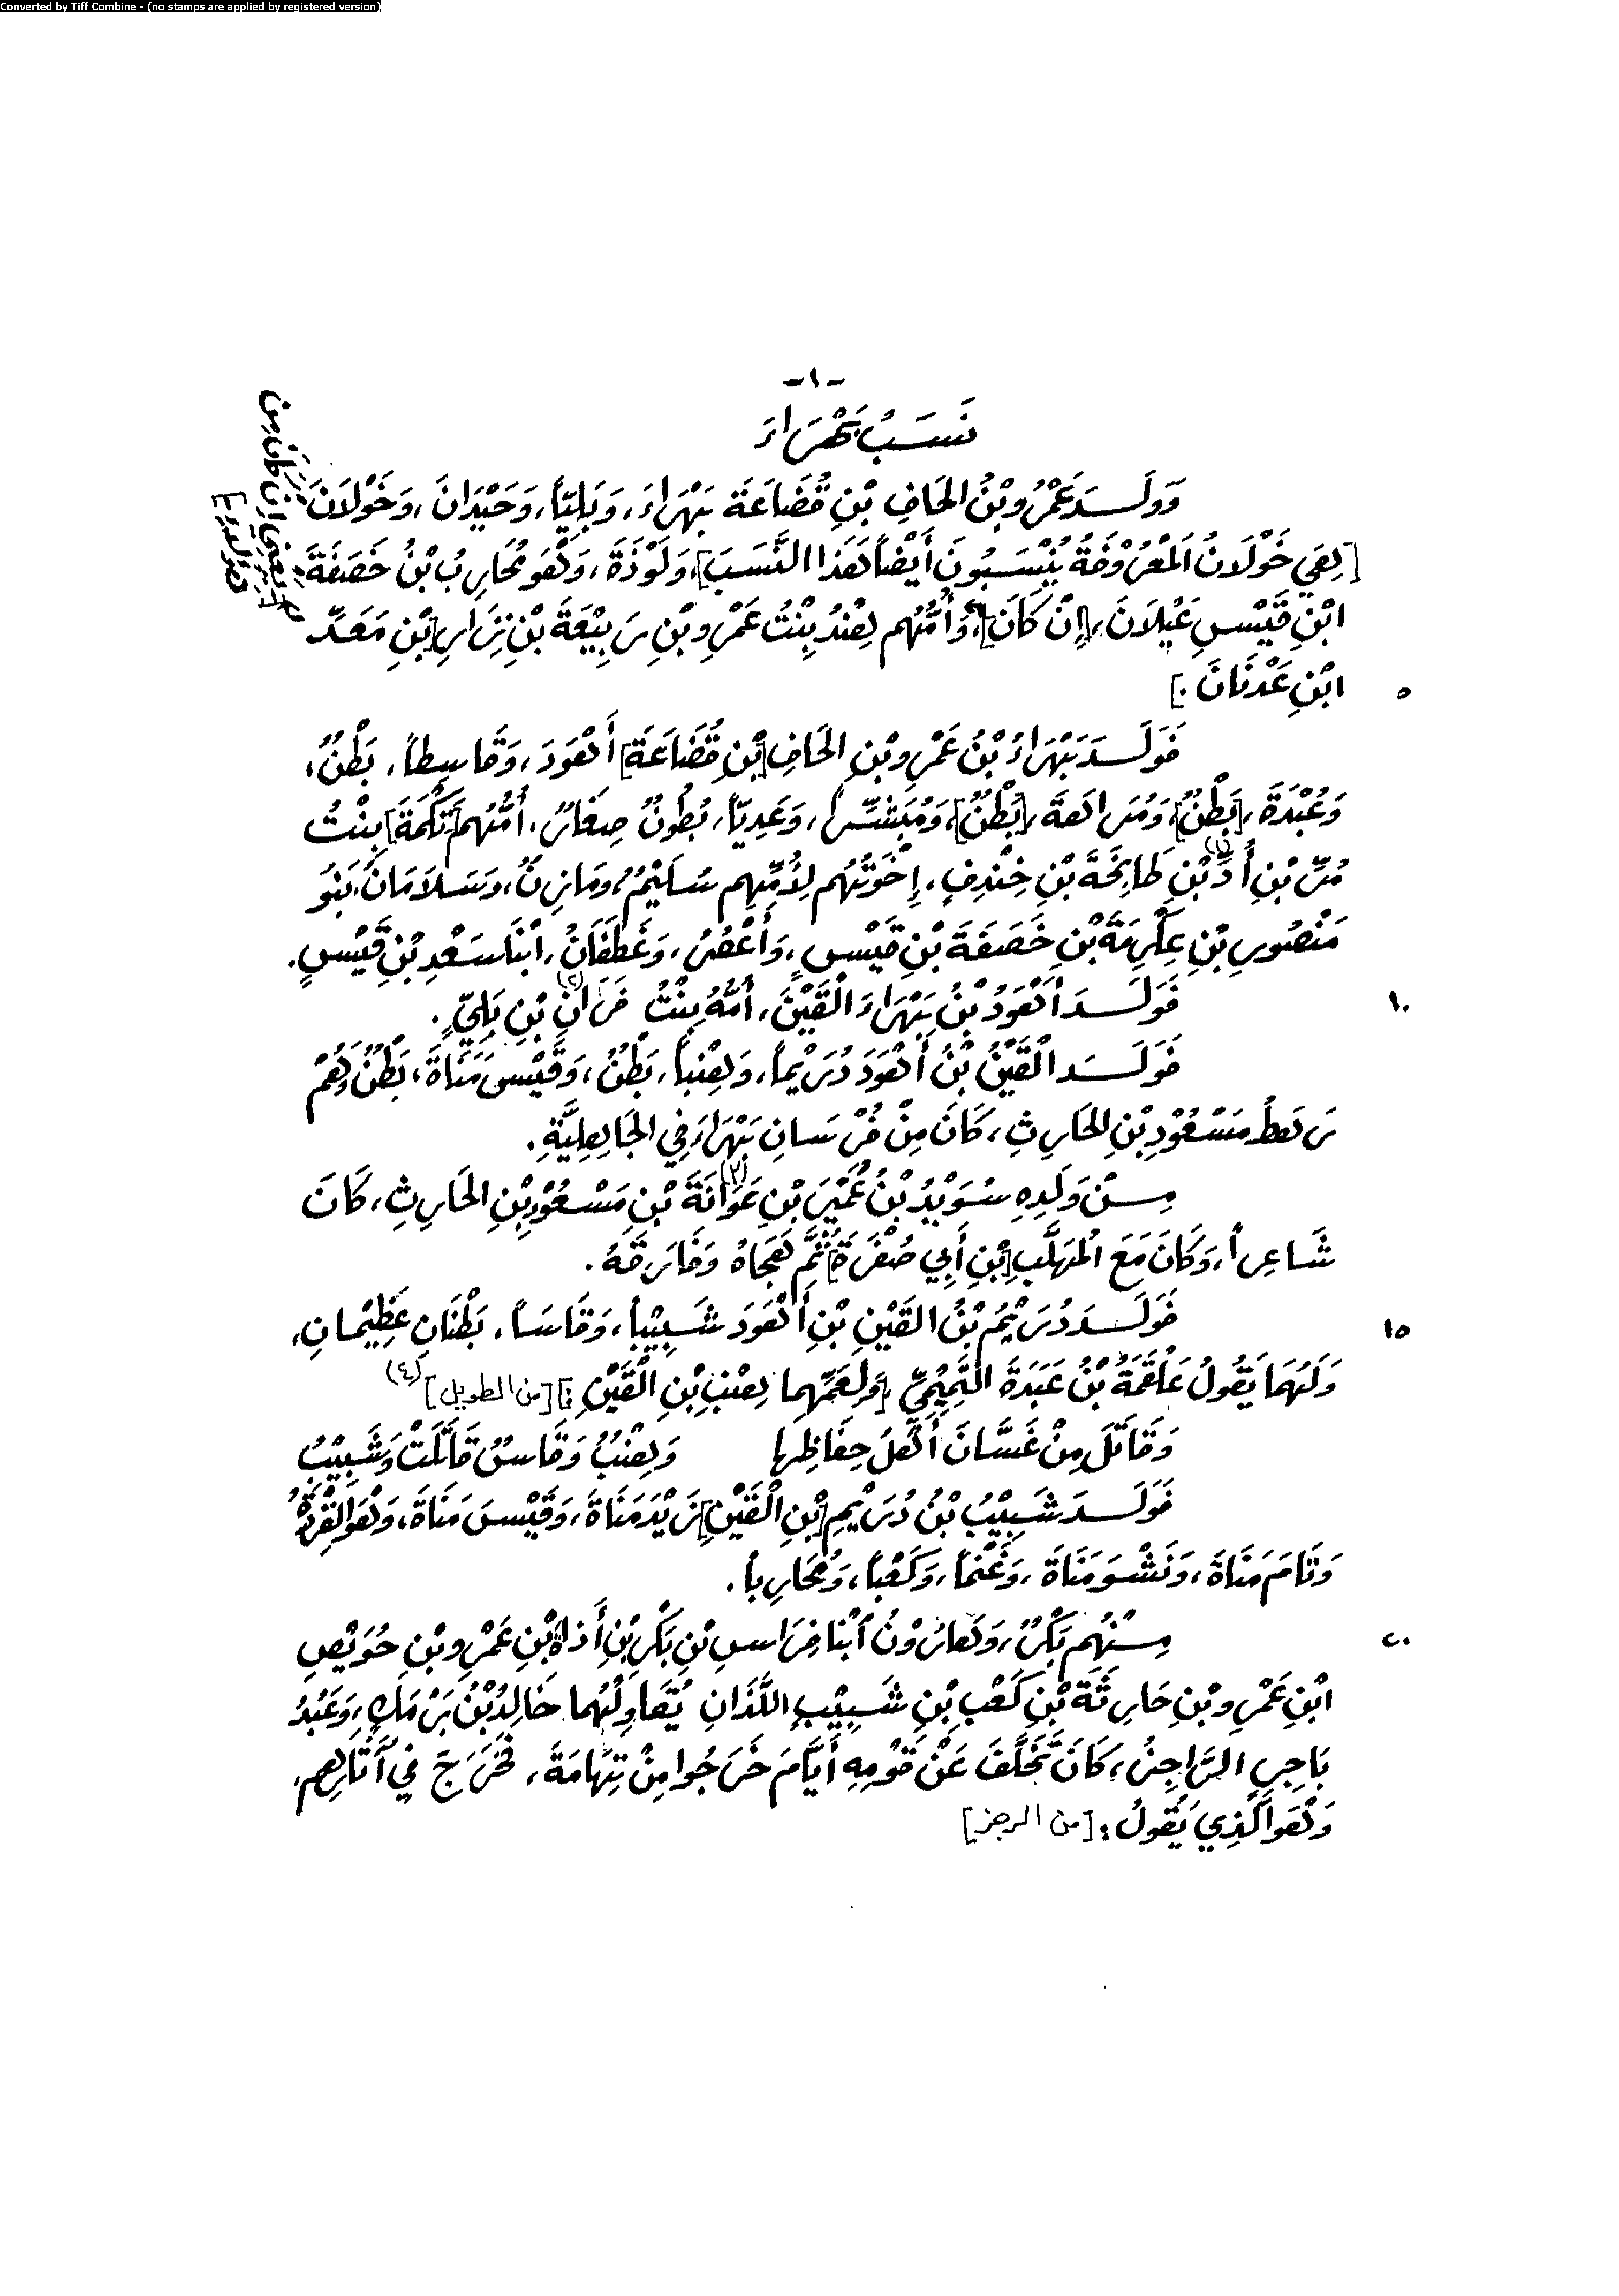 Converted by Tiff Combine - (no stamps are applied by registered version)
-١-
نَسَبُ بَهْرَاءَ
وَوَلَدَ عَمْرُو بْنُ الحَافِ بْنِ قُضَاعَةَ بَهْرَاءَ، وَبَلِيّاً، وَحَيْدَانَ، وَخَوْلَانَ
[هِيَ خَوْلَانُ المَعْرُوْفَةُ يُنْسَبُونَ أَيْضاً هَذَا النَّسَبَ]، وَلَوْذَةَ، وَهُوَ مُحَارِبُ بْنُ خَصَفَةَ
ابْنِ قَيْسِ عَيْلَانَ، [إِنْ كَانَ]، وَأُمُّهُم هِنْدُ بِنْتُ عَمْرِو بْنِ رَبِيْعَةَ بْنِ نِزَارِ [بْنِ مَعَدِّ
[يَعْنِي إِنْ كَانَ مِن
هَؤُلَاءِ]
٥
ابْنِ عَدْنَانَ.]
فَوَلَدَ بَهْرَاءُ بْنُ عَمْرِو بْنِ الحَافِ [بْنِ قُضَاعَةَ] أَهْوَدَ، وَقَاسِطاً، بَطْنٌ،
وَعُبْدَةَ، [بَطْنٌ]، وَمُرَاهِةَ، [بَطْنٌ]، وَمُبَشِّراً، وَعَدِيّاً، بُطُونٌ صِغَارٌ، أُمُّهُم [تَكْمَةُ] بِنْتُ
مُرِّ بْنِ أُدِّ (١) بْنِ طَابِخَةَ بْنِ خِنْدِفٍ، إِخْوَتُهُم لِأُمِّهِم سُلَيْمٌ، وَمَازِنٌ، وَسَلَامَانُ، بَنُو
مَنْصُورِ بْنِ عِكْرِمَةَ بْنِ خَصَفَةَ بْنِ قَيْسٍ، وَأَعْصُرُ، وَغَطَفَانُ، ابْنَا سَعْدِ بْنِ قَيْسٍ.
١٠
فَوَلَدَ أَهْوَدُ بْنُ بَهْرَاءَ القَيْنَ، أُمُّهُ بِنْتُ فَرَانِ (٢) بْنِ بَلِيٍّ.
فَوَلَدَ القَيْنُ بْنُ أَهْوَدَ دُرَيْماً، وَهِنْباً، بَطْنٌ، وَقَيْسَ مَنَاةَ، بَطْنٌ وَهُمْ
رَهْطُ مَسْعُوْدِ بْنِ الحَارِثِ، كَانَ مِنْ فُرْسَانِ بَهْرَاءَ فِي الجَاهِلِيَّةِ.
مِنْ وَلَدِهِ سُوَيْدُ بْنُ عُمَيْرَ بْنِ عَوَانَةَ (٣) بْنِ مَسْعُوْدِ بْنِ الحَارِثِ، كَانَ
شَاعِراً، وَكَانَ مَعَ المُهَلَّبِ [بْنِ أَبِي صُفْرَةَ] ثُمَّ هَجَاهُ وَفَارَقَهُ.
١٥
فَوَلَدَ دُرَيْمُ بْنُ القَيْنِ بْنِ أَهْوَدَ شَبِيْباً، وَقَاسَاً، بَطْنَانِ عَظِيْمَانِ،
وَلَهُمَا يَقُولُ عَلْقَمَةُ بْنُ عَبَدَةَ التَّمِيْمِيِّ [وَلِعَمِّهِما هِنْبِ بْنِ القَيْنِ:] [من الطويل] (٤)
وَقَاتَلَ مِنْ غَسَّانَ أَهْلُ حِفَاظِها وَهِنْبٌ وَقَاسٌ قَاتَلَتْ وَشَبِيْبُ
فَوَلَدَ شَبِيْبُ بْنُ دُرَيْمِ [بْنِ القَيْنِ] زَيْدَ مَنَاةَ، وَقَيْسَ مَنَاةَ، وَهُوَ القِرْيَةُ
وَتَامَ مَنَاةَ، وَنَشْوَ مَنَاةَ، وَغَنْماً، وَكَعْباً، وَمُحَارِباً.
٢٠
مِنْهُم بَكْرٌ، وَهَارُوْنُ ابْنَا فِرَاسِ بْنِ بَكْرِ بْنِ أَذاةَ بْنِ عَمْرِو بْنِ حُوَيْصِ
ابْنِ عَمْرِو بْنِ حَارِثَةَ بْنِ كَعْبِ بْنِ شَبِيْبٍ اللَّذَانِ يُقَاوِلُهُما خَالِدُ بْنُ بَرْمَكٍ، وَعَبْدُ
بَاجِرِ الرَّاجِزُ، كَانَ تَخَلَّفَ عَنْ قَوْمِهِ أَيَّامَ خَرَجُوا مِنْ تِهَامَةَ، فَخَرَجَ فِي آثَارِهِم.
وَهُوَ الَّذِي يَقُولُ: [من الرجز]